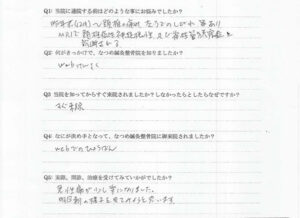 Q1: 当院に通院する前はどのような事にお悩みでしたか？
MRIで頚椎症性神経根症 及び脊柱管狭窄症と
診断される
Q2: 何がきっかけで、なつめ鍼灸整骨院を知りましたか？
Webけんさく
Q3: 当院を知ってからすぐ来院されましたか？しなかったらとしたらなぜですか？
すぐ来院
Q4: なにが決め手となって、なつめ鍼灸整骨院に御来院されましたか？
webでのひょうばん
Q5: 実際、問診、治療を受けてみていかがでしたか？
急性痛が少し楽になりました。
明日朝の様子を見てみようと思います。